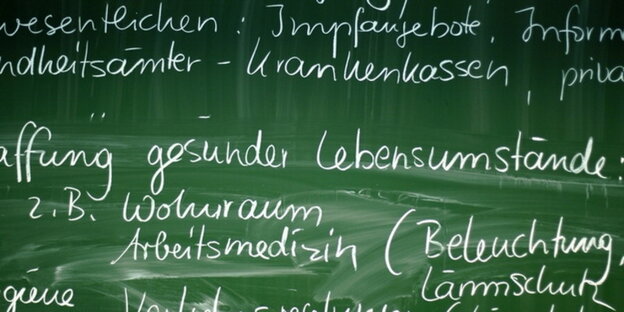 wesentlichen: Impfangebote, Inform
ndheitsämter - Krankenkassen, priva
affung gesunder Lebensumstände:
z.B. Wohnraum
Arbeitsmedizin (Beleuchtung,
Lärmschutz
giene